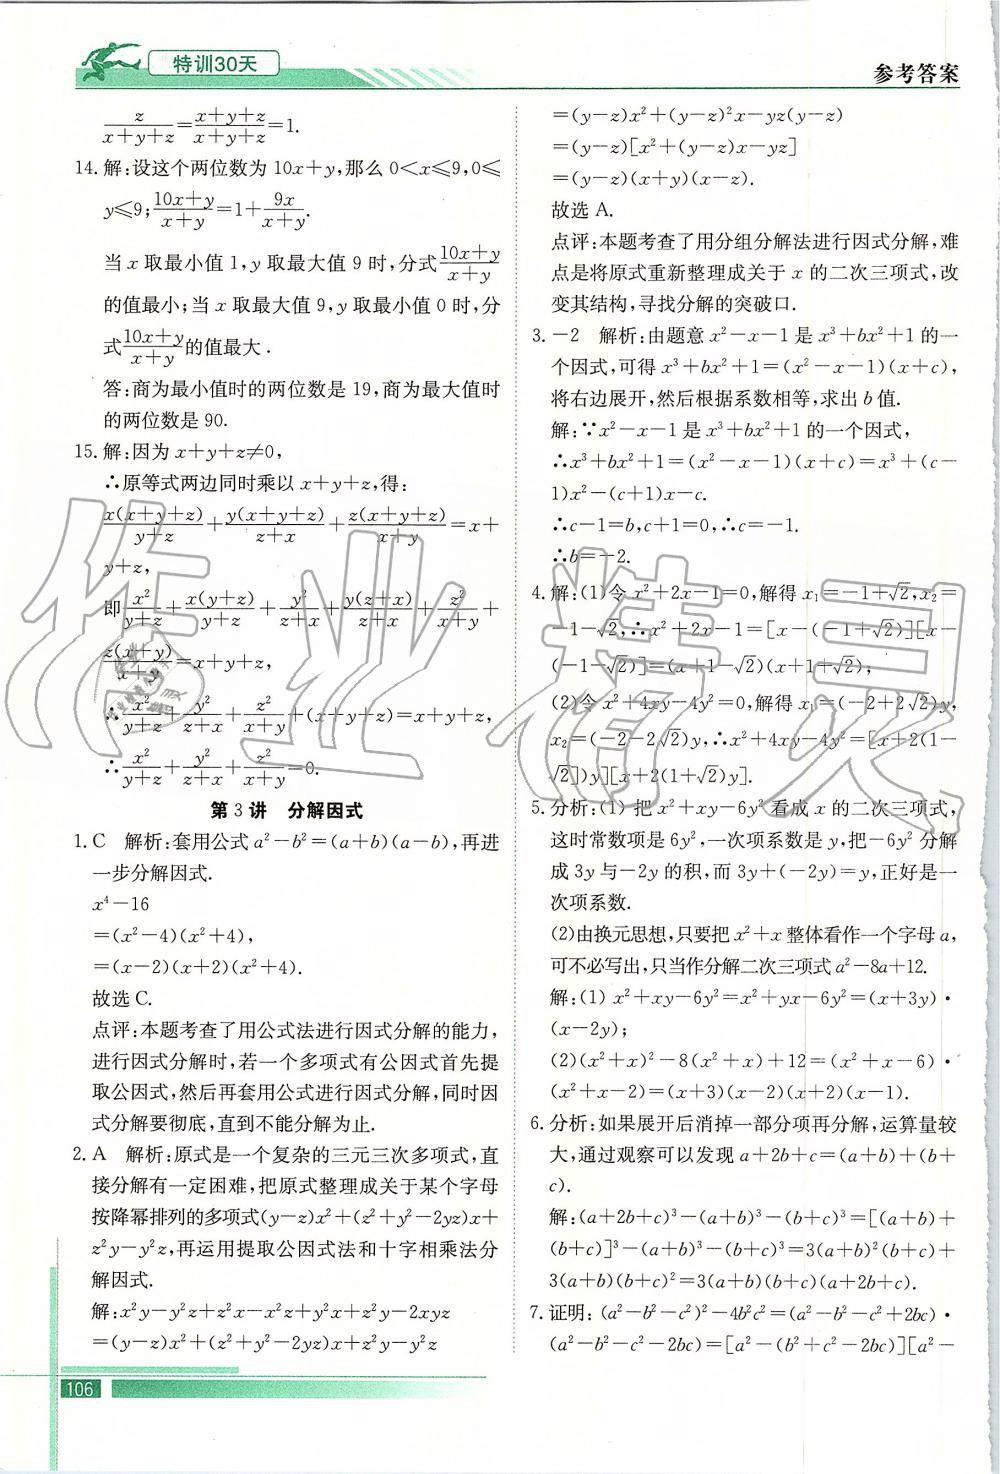 特训30天
参考答案
z/(x+y+z)=(x+y+z)/(x+y+z)=1.
14.解:设这个两位数为 10x+y,那么 0<x≤9,0≤
y≤9;(10x+y)/(x+y)=1+9x/(x+y).
当 x 取最小值 1,y 取最大值 9 时,分式(10x+y)/(x+y)
的值最小;当 x 取最大值 9,y 取最小值 0 时,分
式(10x+y)/(x+y)的值最大.
答:商为最小值时的两位数是 19,商为最大值时
的两位数是 90.
15.解:因为 x+y+z≠0,
∴原等式两边同时乘以 x+y+z,得:
x(x+y+z)/(y+z)+y(x+y+z)/(z+x)+z(x+y+z)/(x+y)=x+
y+z,
即 x²/(y+z)+x(y+z)/(y+z)+y²/(z+x)+y(z+x)/(z+x)+z²/(x+y)+
z(x+y)/(x+y)=x+y+z,
∴x²/(y+z)+y²/(z+x)+z²/(x+y)+(x+y+z)=x+y+z,
∴x²/(y+z)+y²/(z+x)+z²/(x+y)=0.
第 3 讲 分解因式
1.C 解析:套用公式 a²-b²=(a+b)(a-b),再进
一步分解因式.
x⁴-16
=(x²-4)(x²+4),
=(x-2)(x+2)(x²+4).
故选 C.
点评:本题考查了用公式法进行因式分解的能力,
进行因式分解时,若一个多项式有公因式首先提
取公因式,然后再套用公式进行因式分解,同时因
式分解要彻底,直到不能分解为止.
2.A 解析:原式是一个复杂的三元三次多项式,直
接分解有一定困难,把原式整理成关于某个字母
按降幂排列的多项式(y-z)x²+(z²+y²-2yz)x+
z²y-y²z,再运用提取公因式法和十字相乘法分
解因式.
解:x²y-y²z+z²x-x²z+y²x+z²y-2xyz
=(y-z)x²+(z²+y²-2yz)x+z²y-y²z
=(y-z)x²+(y-z)²x-yz(y-z)
=(y-z)[x²+(y-z)x-yz]
=(y-z)(x+y)(x-z).
故选 A.
点评:本题考查了用分组分解法进行因式分解,难
点是将原式重新整理成关于 x 的二次三项式,改
变其结构,寻找分解的突破口.
3.-2 解析:由题意 x²-x-1 是 x³+bx²+1 的一
个因式,可得 x³+bx²+1=(x²-x-1)(x+c),
将右边展开,然后根据系数相等,求出 b 值.
解:∵x²-x-1 是 x³+bx²+1 的一个因式,
∴x³+bx²+1=(x²-x-1)(x+c)=x³+(c-
1)x²-(c+1)x-c.
∴c-1=b,c+1=0,∴c=-1.
∴b=-2.
4.解:(1)令 x²+2x-1=0,解得 x₁=-1+√2,x₂=
-1-√2,∴x²+2x-1=[x-(-1+√2)][x-
(-1-√2)]=(x+1-√2)(x+1+√2);
(2)令 x²+4xy-4y²=0,解得 x₁=(-2+2√2)y,
x₂=(-2-2√2)y,∴x²+4xy-4y²=[x+2(1-
√2)y][x+2(1+√2)y].
5.分析:(1) 把 x²+xy-6y² 看成 x 的二次三项式,
这时常数项是 6y²,一次项系数是 y,把-6y² 分解
成 3y 与-2y 的积,而 3y+(-2y)=y,正好是一
次项系数.
(2)由换元思想,只要把 x²+x 整体看作一个字母 a,
可不必写出,只当作分解二次三项式 a²-8a+12.
解:(1) x²+xy-6y²=x²+yx-6y²=(x+3y)·
(x-2y);
(2)(x²+x)²-8(x²+x)+12=(x²+x-6)·
(x²+x-2)=(x+3)(x-2)(x+2)(x-1).
6.分析:如果展开后消掉一部分项再分解,运算量较
大,通过观察可以发现 a+2b+c=(a+b)+(b+
c).
解:(a+2b+c)³-(a+b)³-(b+c)³=[(a+b)+
(b+c)]³-(a+b)³-(b+c)³=3(a+b)²(b+c)+
3(a+b)(b+c)²=3(a+b)(b+c)(a+2b+c).
7.证明: (a²-b²-c²)²-4b²c²=(a²-b²-c²+2bc)·
(a²-b²-c²-2bc)=[a²-(b²+c²-2bc)][a²-
106
作业精灵